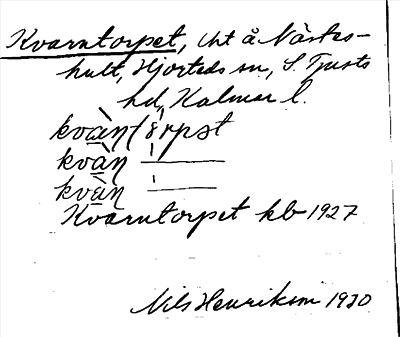 Kvarntorpet, lht å Näshs-
hult, Hjorteds sn, S. Tjusts
hd, Kalmar l.
kvàɳ
kvàɳ
kvàɳ
Kvarntorpet kb 1927
Nils Henrikson 1930